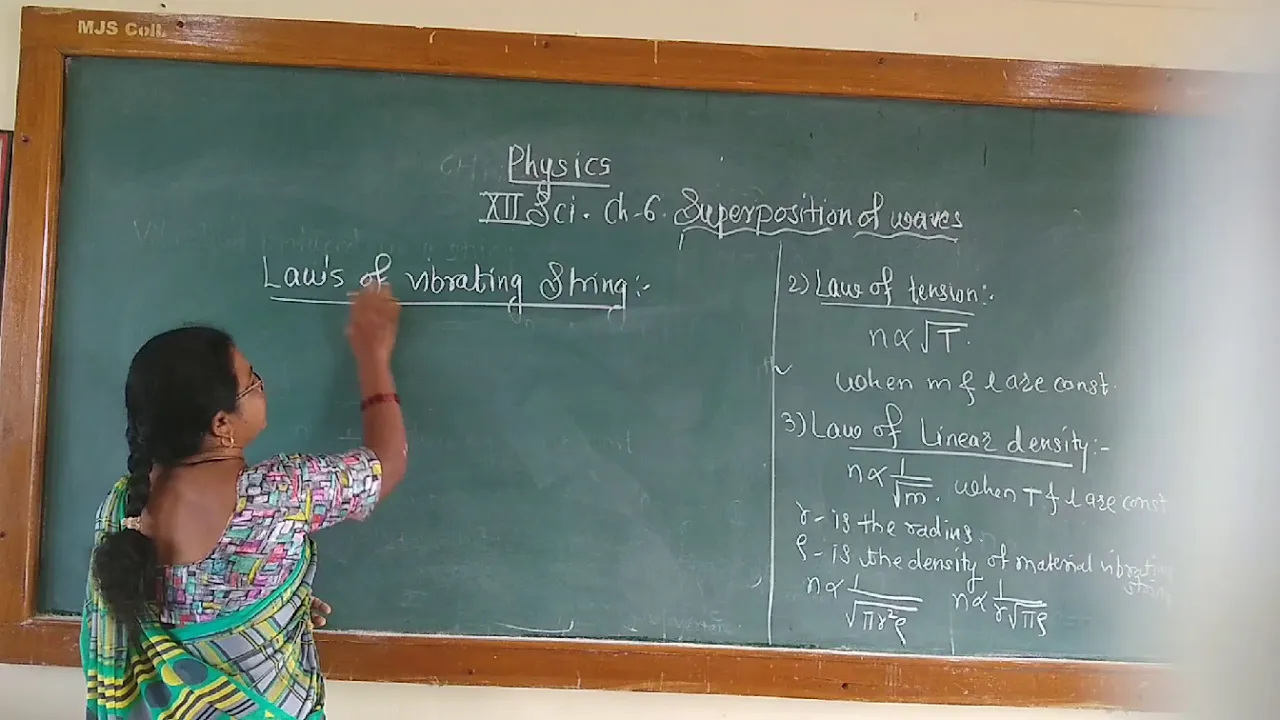 MJS Coll.
Physics
XII Sci. Ch-6. Superposition of waves
Law's of vibrating String:-
2) Law of tension:-
n∝√T.
when m & l are const.
3) Law of Linear density:-
n∝1/√m. when T & l are const
r - is the radius.
ρ - is the density of material vibrating
string
n∝1/√πr²ρ n∝1/r√πρ